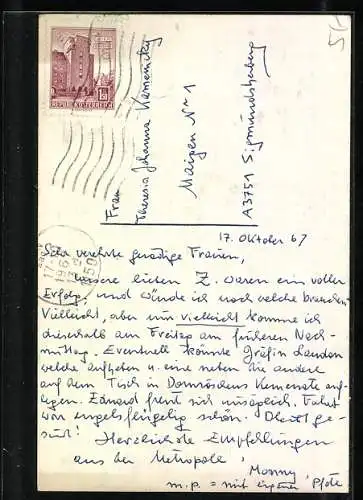 REPUBLIK ÖSTERREICH
1.50
Frau
Theresia Johanna
Maigen Nr 1
A3751 Sigmundsherberg
17. Oktober 67
Sehr verehrte gnädige Frauen,
unsere lieben Z. waren ein voller
Erfolg, und würde ich noch welche brauchen.
Vielleicht, aber nur vielleicht komme ich
dieserhalb am Freitag am früheren Nach-
mittag. Eventuell könnte Gräfin
welche aufheben u. eine neben die andere
auf dem Tisch in Kemenate auf-
legen. Eduard freut sich unsäglich. Fahrt
war schön
Herzlichste Empfehlungen
aus der Metropole,
m. p. = mit eigener Pfote